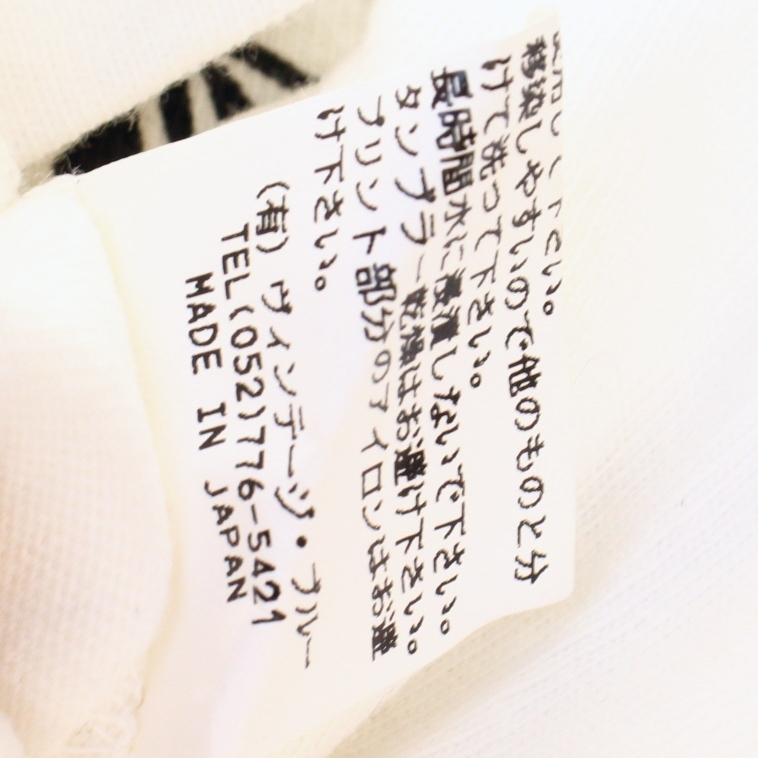 下さい。
移染しやすいので他のものと分
けて洗って下さい。
長時間水に浸漬しないで下さい。
タンブラー乾燥はお避け下さい。
プリント部分のアイロンはお避
け下さい。
(有)ヴィンテージ・ブルー
TEL(052)776-5421
MADE IN JAPAN